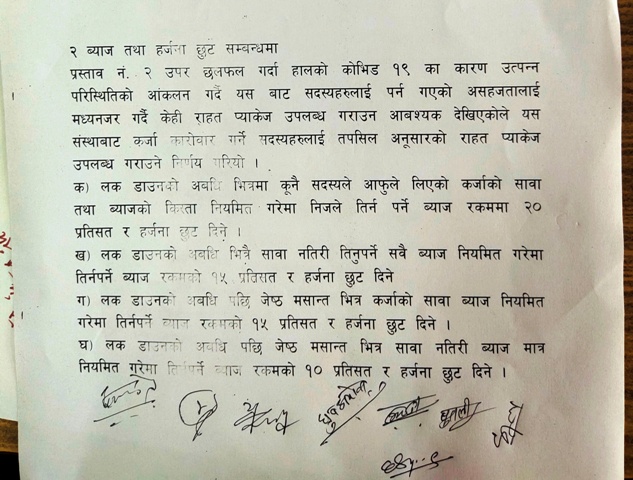 २ ब्याज तथा हर्जना छुट सम्बन्धमा
प्रस्ताव नं. २ उपर छलफल गर्दा हालको कोभिड १९ का कारण उत्पन्न
परिस्थितिको आंकलन गर्दै यस बाट सदस्यहरुलाई पर्न गएको असहजतालाई
मध्यनजर गर्दै केही राहत प्याकेज उपलब्ध गराउन आबश्यक देखिएकोले यस
संस्थाबाट कर्जा कारोबार गर्ने सदस्यहरुलाई तपसिल अनुसारको राहत प्याकेज
उपलब्ध गराउने निर्णय गरियो ।
क) लक डाउनको अबधि भित्रमा कूनै सदस्यले आफुले लिएको कर्जाको सावा
तथा ब्याजको किस्ता नियमित गरेमा निजले तिर्न पर्ने ब्याज रकममा २०
प्रतिसत र हर्जना छुट दिने ।
ख) लक डाउनको अबधि भित्रै सावा नतिरी तिनुपर्ने सवै ब्याज नियमित गरेमा
तिर्नपर्ने ब्याज रकमको १५ प्रतिसत र हर्जना छुट दिने
ग) लक डाउनको अबधि पछि जेष्ठ मसान्त भित्र कर्जाको सावा ब्याज नियमित
गरेमा तिर्नपर्ने ब्याज रकमको १५ प्रतिसत र हर्जना छुट दिने ।
घ) लक डाउनको अबधि पछि जेष्ठ मसान्त भित्र सावा नतिरी ब्याज मात्र
नियमित गरेमा तिर्नपर्ने ब्याज रकमको १० प्रतिसत र हर्जना छुट दिने ।